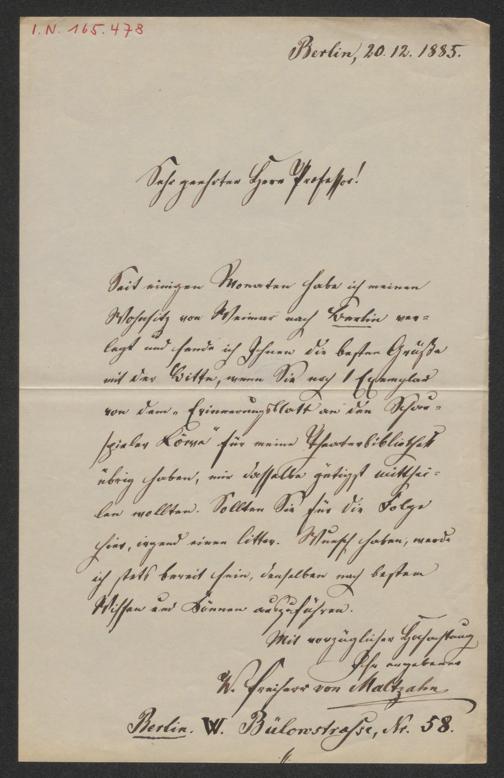 I.N. 165.478
Berlin, 20.12.1885.
Sehr geehrter Herr Professor!
Seit einigen Monaten habe ich meinen
Wohnsitz von Weimar nach Berlin ver=
legt und sende ich Ihnen die besten Grüße
mit der Bitte, wenn Sie noch 1 Exemplar
von dem „Erinnerungsblatt an den Schau=
spieler" für meine Theaterbibliothek
übrig haben, mir dasselbe gütigst mitthei=
len wollten. Sollten Sie für die Folge
hier, irgend einen litter. Wunsch haben, werde
ich stets bereit sein, denselben nach bestem
Wissen und Können auszuführen.
Mit vorzüglicher Hochachtung
Ihr ergebener
W. Freiherr von Maltzahn
Berlin. W. Bülowstrasse, Nr. 58.